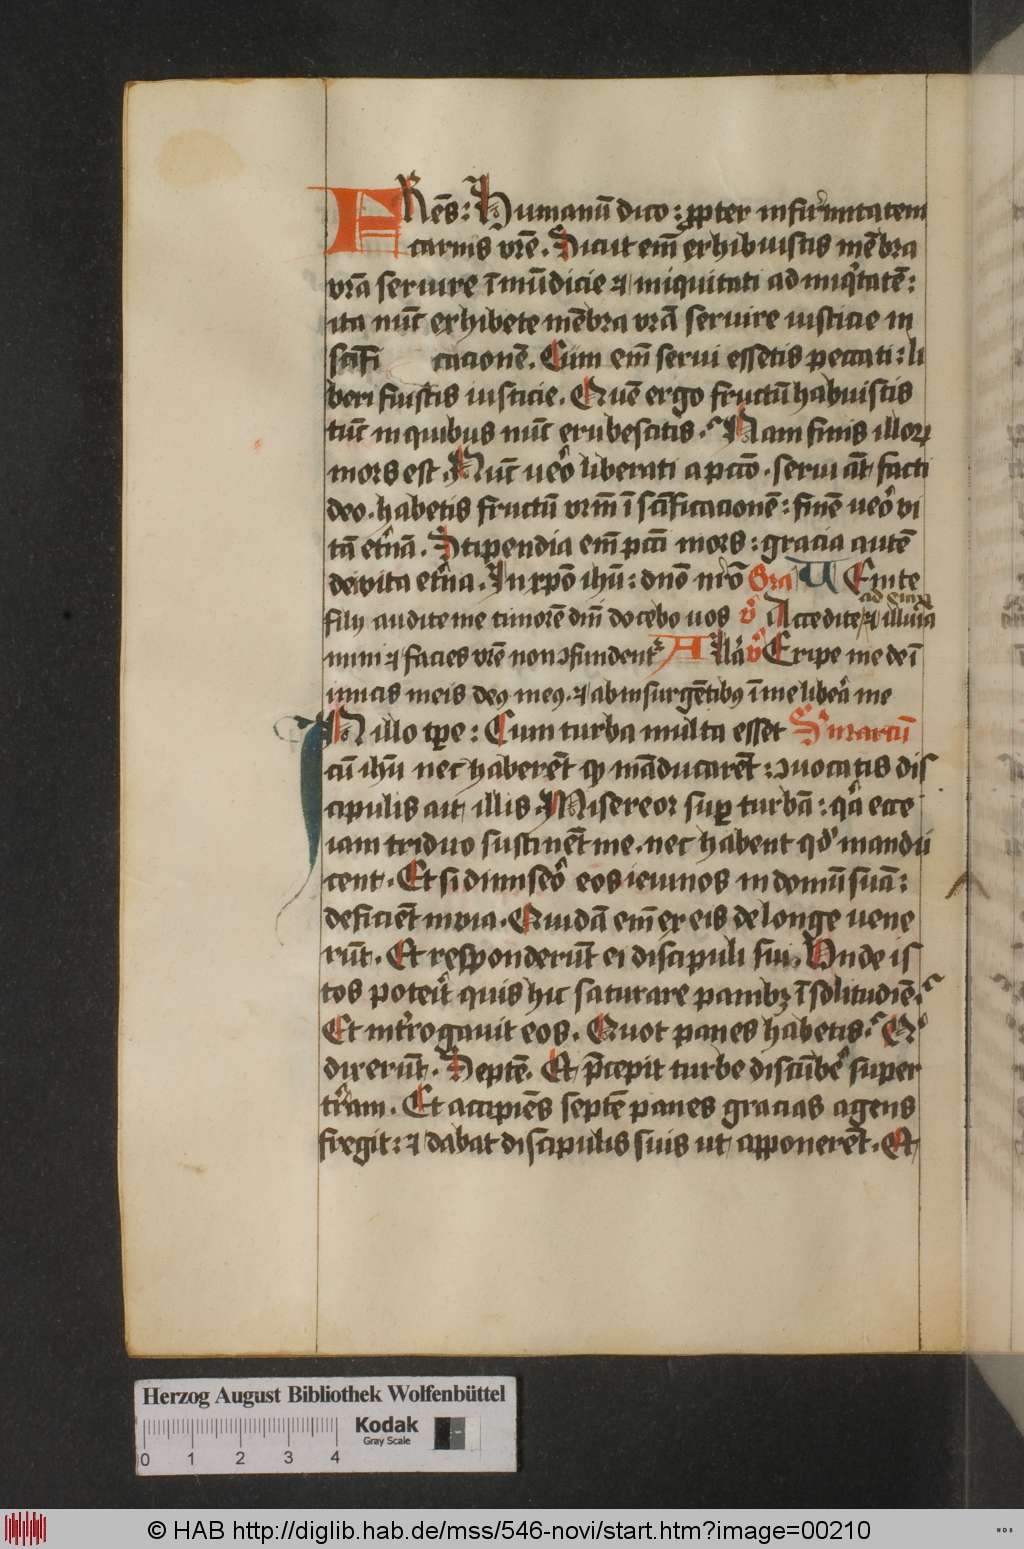 FRēs: Humanū dico: ꝓpter infirmitatem
carnis vr̄e. Sicut em̄ exhibuistis mēbra
vr̄a seruire īmūdicie ⁊ iniquitati ad iniqͥtatē:
ita nūc exhibete mēbra vr̄a seruire iusticie in
scīfi cacionē. Cum em̄ serui essetis peccati: li
beri fuistis iusticie. Quē ergo fructū habuistis
tūc in quibus nūc erubescitis. Nam finis illoꝝ
mors est. Nūc ueͦ liberati a pctō. serui āt facti
deo. habetis fructū vr̄m ī scīficacionē: finē ueͦ vi
tā et̓nā. Stipendia em̄ pctī mors: gracia autē
dei vita et̓na. In xp̄o ihū: dn̄o nr̄o Gra Uenite
filij audite me timorē dn̄i docebo uos v̓ Accedite ad eū ⁊ illuīa
mini ⁊ facies vr̄e non ꝯfundent᷑ Allā v̓ Eripe me de ī
imicis meis deꝰ meꝰ. ⁊ ab insurgētibꝰ ī me libeā me
IN illo tp̄e: Cum turba multa esset S̓ marcū
cū ihū nec haberēt qͥ māducarēt: ꝯuocatis dis
cipulis ait illis. Misereor suꝑ turbā: qͣ ecce
iam triduo sustinēt me. nec habent qd̓ mandu
cent. Et si dimiseͦ eos ieiunos in domū suā:
deficiēt in via. Quidā em̄ ex eis de longe uene
rūt. Et responderūt ei discipuli sui. Vnde is
tos poteīt quis hic saturare panibꝫ ī solitudiē.
Et int̓rogauit eos. Quot panes habetis. Qͥ
dixerūt. Septē. Et p̄cepit turbe discūbe̓ super
t̓ram. Et accipiēs septē panes gracias agens
fregit: ⁊ dabat discipulis suis ut apponerēt. Et
Herzog August Bibliothek Wolfenbüttel
Kodak
Gray Scale
0 1 2 3 4
© HAB http://diglib.hab.de/mss/546-novi/start.htm?image=00210